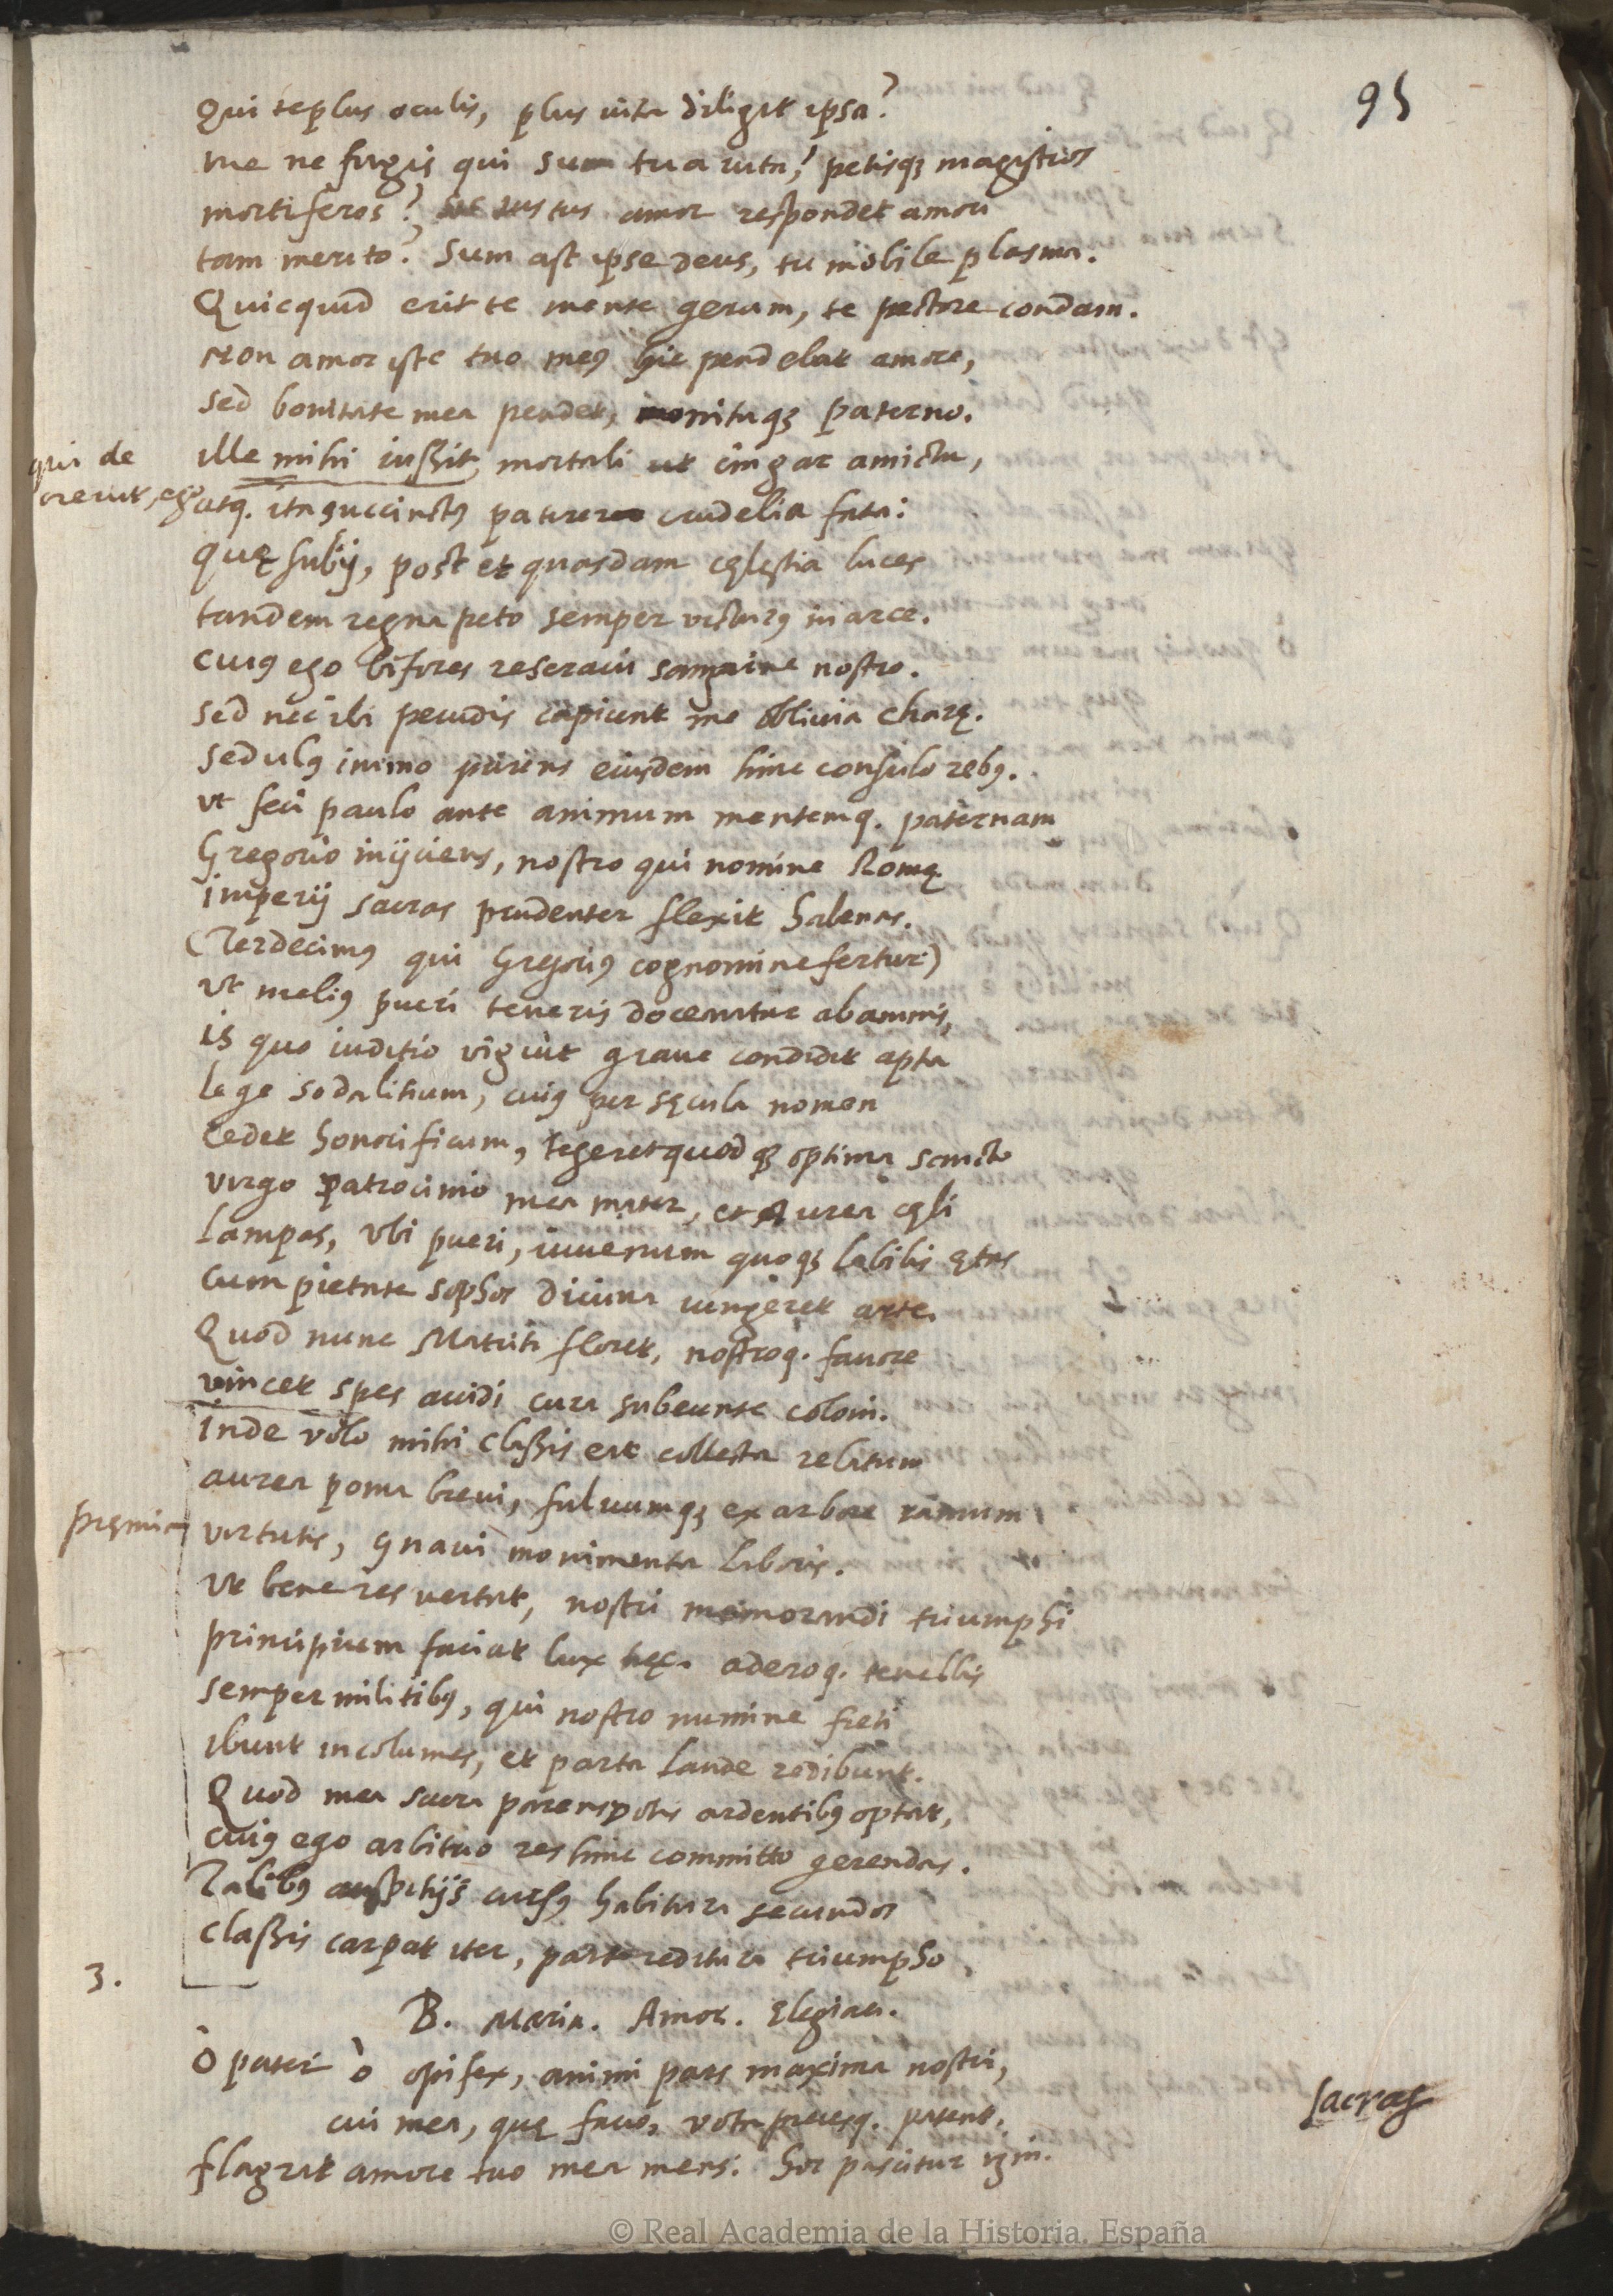 95
Qui te plus oculis, plus uita diligit ipsa?
me ne fugis qui sum tua uita? petisq; magistros
mortiferos? sic iustus amor respondet amori
tam merito? Sum ast ipse deus, tu mobile plasma.
Quicquid erit te mente geram, te pectore condam.
Non amor iste tuo meus hic pendebat amore,
sed bonitate mea pendet, monituq; paterno.
qui de
creuit, ego
ille mihi iussit, mortali ut cingar amictu,
atq. ita succinctus paterer crudelia fata:
quę subij, post et quasdam cęlestia luces
tandem regna peto semper victurus in arce.
cuius ego bifores reseraui sanguine nostro.
sed nec ibi pecudis capiunt me obliuia charę.
sedulus immo pariens eiusdem hinc consulo rebus.
vt feci paulo ante animum mentemq. paternam
Gregorio inijciens, nostro qui nomine Romę
imperij sacras prudenter flexit habenas.
(Terdecimus qui Gregorius cognomine fertur)
vt melius pueri teneris docerentur ab annis,
is quo iuditio viguit graue condidit apta
lege sodalitium, cuius per sęcula nomen
cedet honorificum, tegeret quod q; optima sancto
virgo patrocinio mea mater, et Aurea cęli
Lampas, vbi pueri, iuuenum quoq; labilis ętas
cum pietate sophos diuina iungeret arte.
Quod nunc Matriti floret, nostroq. fauore
vincet spes auidi cura subeunte coloni.
inde volo mihi classis eat collecta relatum
aurea poma breui, fuluumq; ex arbore ramum
pręmia
virtutis, gnaui monimenta laboris.
vt bene res vertat, nostri memorandi triumphi
principium faciat lux hęc. aderoq. tenellis
semper militibus, qui nostro numine freti
ibunt incolumes, et parta laude redibunt.
Quod mea sacra parens votis ardentibus optat,
cuius ego arbitrio res hinc committo gerendas.
Talibus auspitijs cursus habitura secundos
classis carpat iter, parto reditura triumpho.
3.
B. Maria. Amor. Elegiaci.
ò pater ò opifex, animi pars maxima nostri,
cui mea, quę facio, vota precesq. patent.
flagrat amore tuo mea mens. hoc pascitur igni.
sacras
© Real Academia de la Historia. España